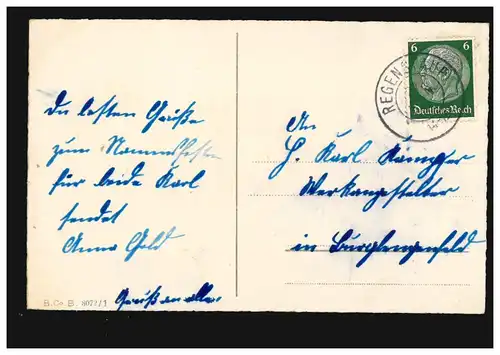 Die besten Grüße
zum Namensfeste
für beide Karl
sendet
Anna Gold
Grüße an alle
B.Co.B. 8072/1
6 6
Deutsches Reich
REGEN
An
H. Karl
Werkangestellter
in Burglengenfeld